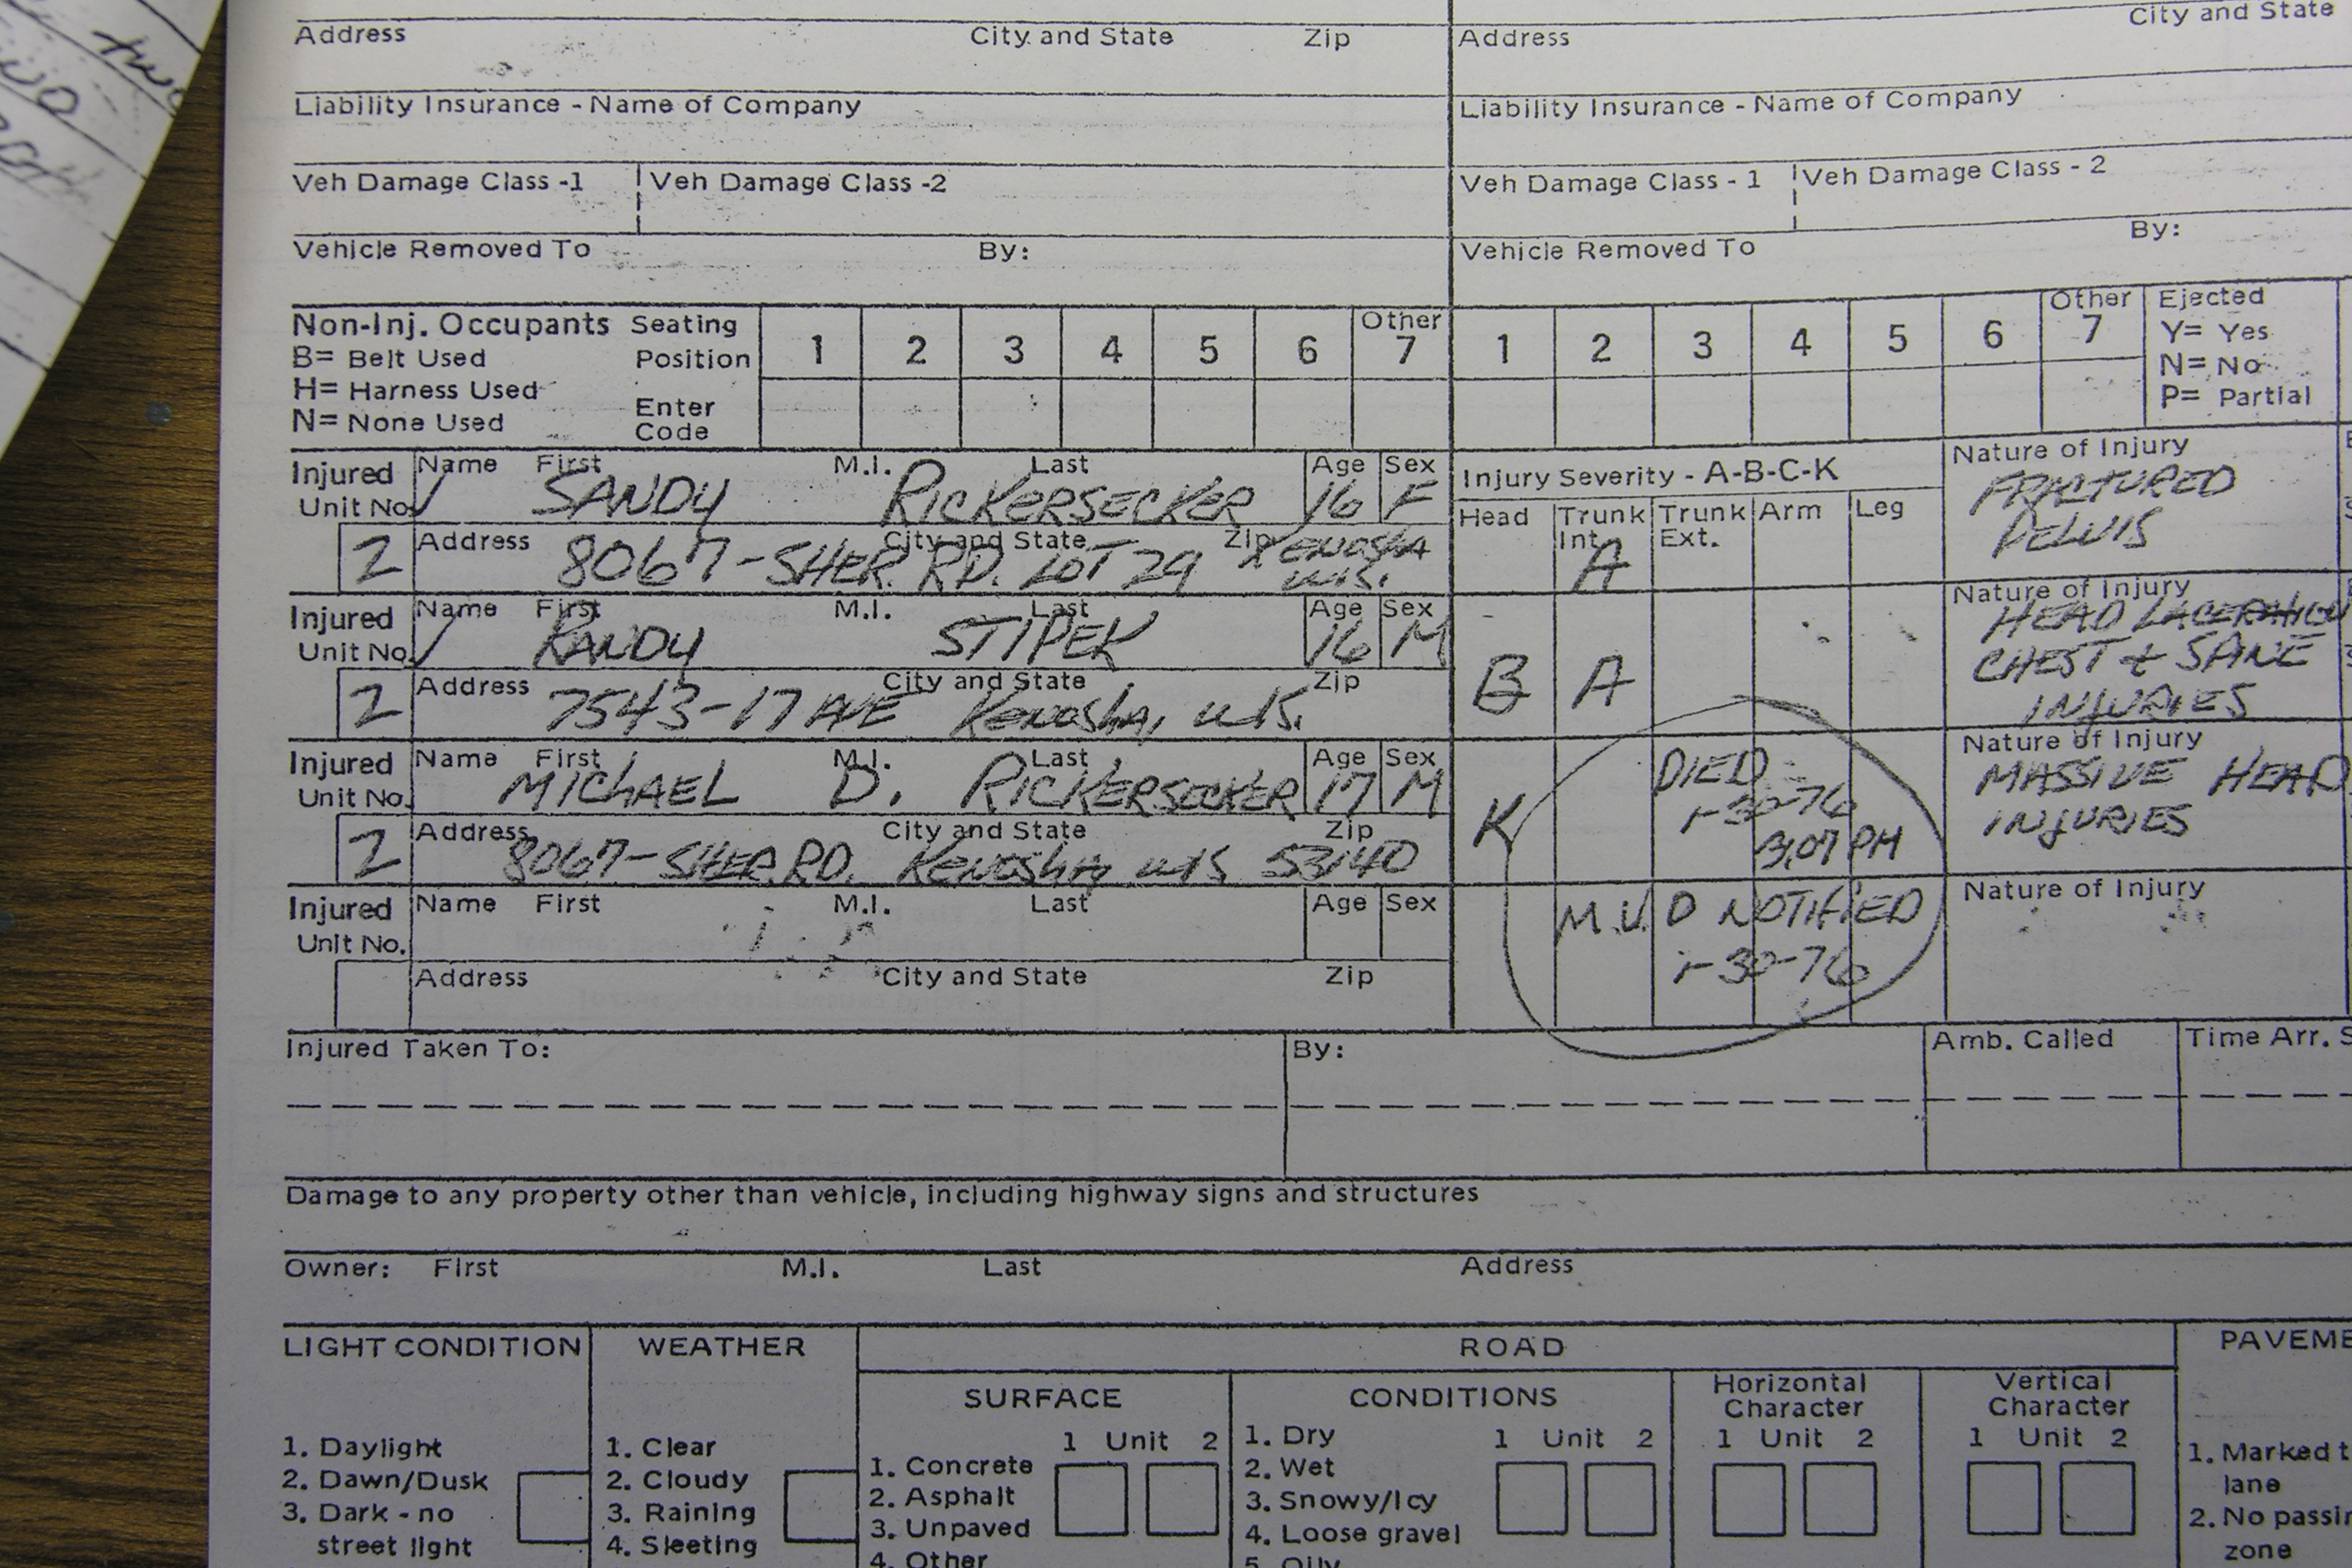 two
City and State
Address City and State Zip Address
Liability Insurance - Name of Company Liability Insurance - Name of Company
Veh Damage Class -1 Veh Damage Class -2 Veh Damage Class - 1 Veh Damage Class - 2
Vehicle Removed To By: Vehicle Removed To By:
Non-Inj. Occupants Seating Position 1 2 3 4 5 6 Other 7 1 2 3 4 5 6 Other 7 Ejected
B= Belt Used Y= Yes
H= Harness Used Enter Code N= No
N= None Used P= Partial
Injured Unit No. Name First M.I. Last Age Sex Injury Severity - A-B-C-K Nature of Injury
SANDY RICKERSECKER 16 F FRACTURED
Head Trunk Int. Trunk Ext. Arm Leg PELVIS
2 Address City and State Zip
8067-SHER. RD. LOT 29 KENOSHA WIS. A
Injured Unit No. Name First M.I. Last Age Sex Nature of Injury
RANDY STIPEK 16 M HEAD LACERATION
2 Address City and State Zip CHEST & SPINE
7543-17 AVE KENOSHA, WIS. B A INJURIES
Injured Unit No. Name First M.I. Last Age Sex Nature of Injury
MICHAEL D. RICKERSECKER 17 M K DIED MASSIVE HEAD
1-30-76 INJURIES
2 Address City and State Zip
8067-SHER.RD. KENOSHA WIS 53140 3,07 PM
Injured Unit No. Name First M.I. Last Age Sex Nature of Injury
M.V.D NOTIFIED
1-30-76
Address City and State Zip
Injured Taken To: By: Amb. Called Time Arr. S
Damage to any property other than vehicle, including highway signs and structures
Owner: First M.I. Last Address
LIGHT CONDITION WEATHER ROAD PAVEME
SURFACE CONDITIONS Horizontal Character Vertical Character
1 Unit 2 1 Unit 2 1 Unit 2 1 Unit 2
1. Daylight 1. Clear 1. Concrete 1. Dry 1. Marked t
lane
2. Dawn/Dusk 2. Cloudy 2. Asphalt 2. Wet 2. No passin
zone
3. Dark - no street light 3. Raining 3. Unpaved 3. Snowy/Icy
4. Sleeting 4. Other 4. Loose gravel
5. Oily